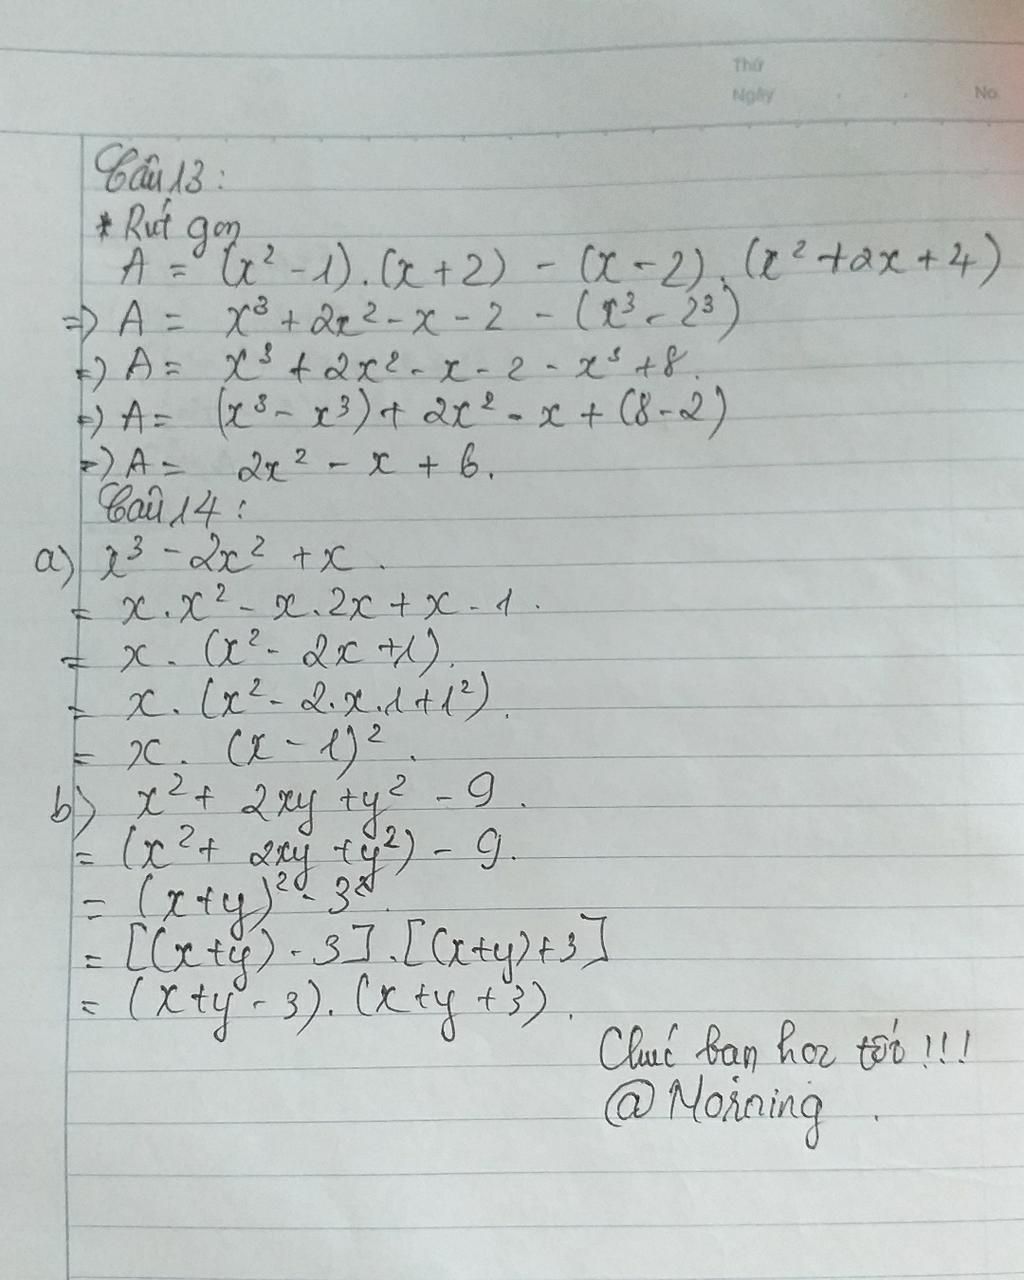 Thứ
Ngày . . No
Câu 13:
* Rút gọn
A = (x² - 1).(x + 2) - (x - 2).(x² + 2x + 4)
=> A = x³ + 2x² - x - 2 - (x³ - 2³)
=> A = x³ + 2x² - x - 2 - x³ + 8.
=> A = (x³ - x³) + 2x² - x + (8 - 2)
=> A = 2x² - x + 6.
Câu 14:
a) x³ - 2x² + x.
= x.x² - x.2x + x - 1.
= x.(x² - 2x + 1).
= x.(x² - 2.x.1 + 1²).
= x.(x - 1)².
b) x² + 2xy + y² - 9.
= (x² + 2xy + y²) - 9.
= (x+y)² - 3².
= [(x+y) - 3].[(x+y) + 3]
= (x+y - 3).(x+y + 3).
Chúc bạn học tốt !!!
@Morning.